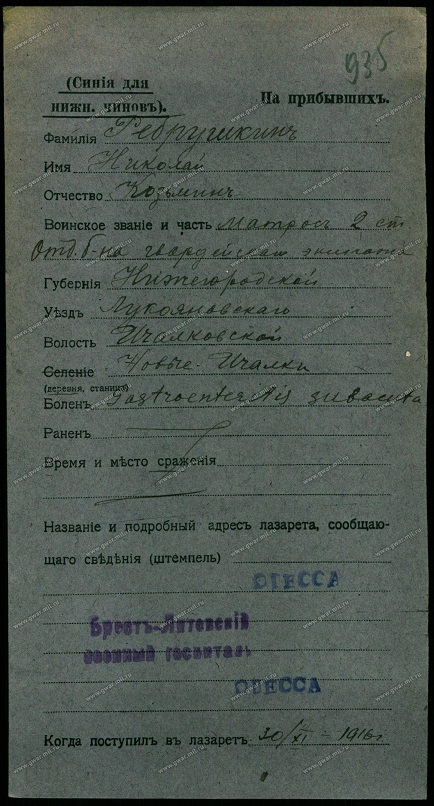 935
(Синія для
нижн. чиновъ).
На прибывшихъ.
Фамилія Ребрушкинъ
Имя Николай
Отчество Козьминъ
Воинское званіе и часть матросъ 2 ст.
Отд. б-на гвардейскаго экипажа
Губернія Нижегородской
Уѣздъ Лукояновскаго
Волость Ичалковской
Селеніе Новые-Ичалки
(деревня, станица)
Боленъ Gastroenteritis subacuta
Раненъ
Время и мѣсто сраженія
Названіе и подробный адресъ лазарета, сообщаю-
щаго свѣдѣнія (штемпель)
ОДЕССА
Брестъ-Литовскій
военный госпиталь
ОДЕССА
Когда поступилъ въ лазаретъ 30/XI - 1916 г.
www.gwar.mil.ru